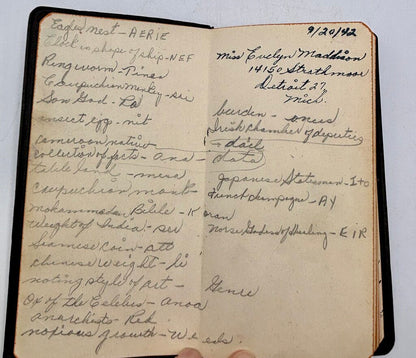 Eagles Nest - AERIE
Clock in shape of ship - NEF
Ringworm - Tinea
Capuchin Monkey - sai
Sun God - Ra
insect egg - nit
cameroon native
collection of facts - Ana -
table land - mesa
Capuchean monk -
Mohammadan Bible - K
weight of India - ser
Siamese coin - att
chinese weight - li
noting style of art -
Ox of the Celebes - Anoa
anarchists - Red.
noxious growth - Weeds.
9/20/42
Miss Evelyn Maddison
14150 Strathmoor
Detroit 27
Mich.
burden - onus
Irish chamber of deputies
- dail
data
Japanese Statesman - Ito
French champagne - AY
oran
Norse Goddess of Healing - EIR
Genre